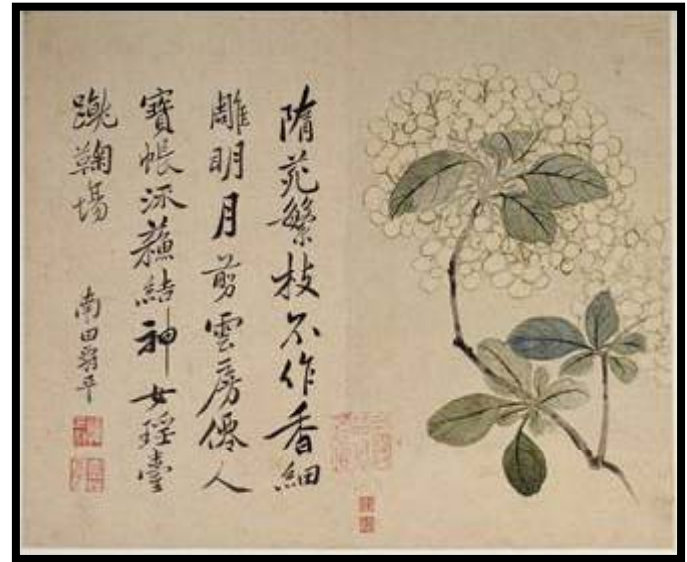 隋苑繁枝不作香細
雕明月剪雲房僊人
寶帳流蘓結神女瑤臺
跳鞠場
南田壽平